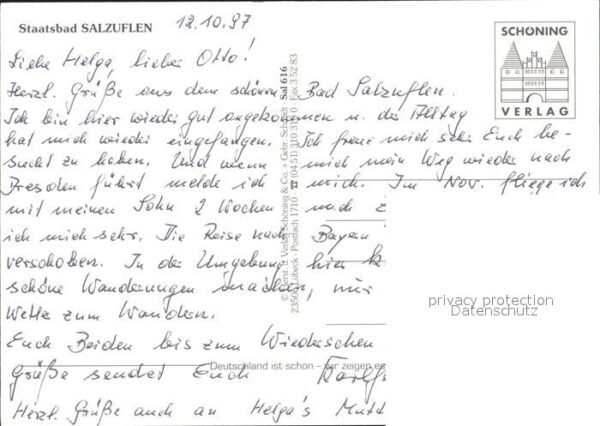 Staatsbad SALZUFLEN 12.10.97
SCHÖNING
VERLAG
Liebe Helga, lieber Otto!
Herzl. Grüße aus dem schönen Bad Salzuflen.
Ich bin hier wieder gut angekommen u. der Alltag
hat mich wieder eingefangen. Ich freue mich sehr Euch be-
sucht zu haben. Und wenn mich mein Weg wieder nach
Dresden führt melde ich mich. Im Nov. fliege ich
mit meinen Sohn 2 Wochen nach
ich mich sehr. Die Reise nach Bayern
verschoben. In der Umgebung hier
schöne Wanderungen machen, nur
Wetter zum Wandern.
Euch Beiden bis zum Wiedersehen
Grüße sendet Euch
Herzl. Grüße auch an Helga's
© Schöning & Co. + Gebr. Schmidt Sal 616
Lübeck · Postfach 1710 · ☎ (0451)
Deutschland ist schön – wir zeigen es
privacy protection
Datenschutz